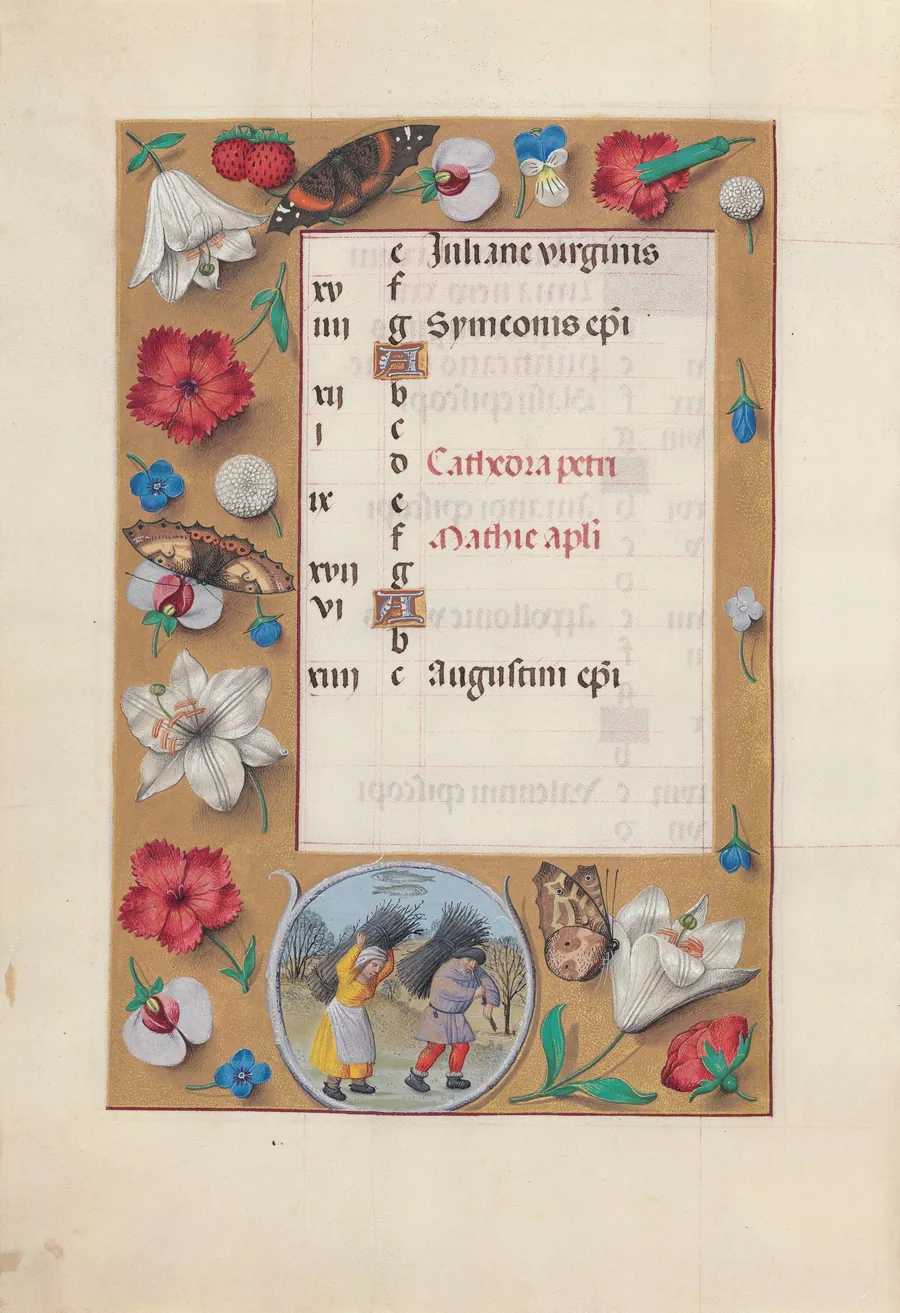 e Iuliane virginis
xv f
iiii g Symeonis ep̄i
A
xii b
i c
d Cathedra petri
ix e
f Mathie apl̄i
xvii g
vi A
b
xiiii c Augustini ep̄i